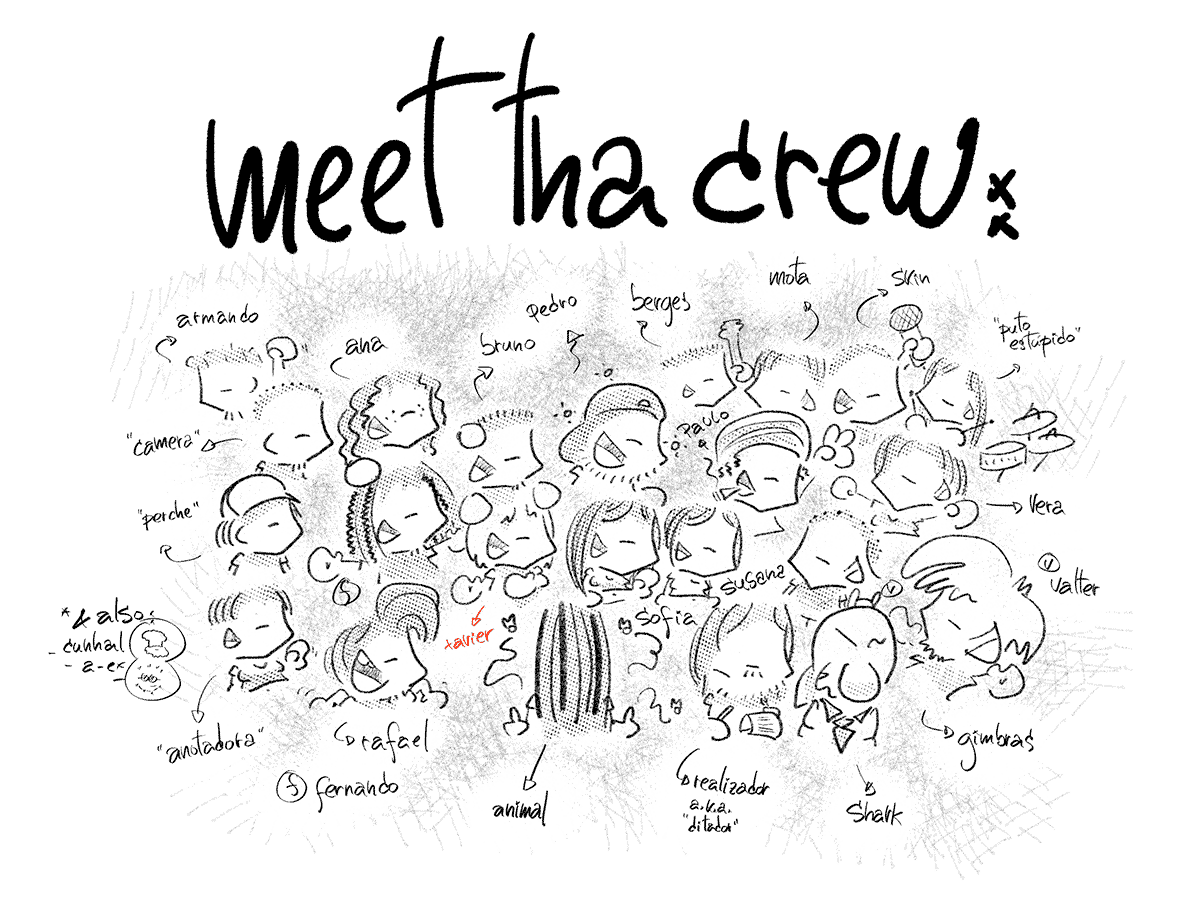 meet tha crew
armando
ana
bruno
pedro
berges
mota
skin
"puto
estúpido"
"camera"
Paulo
"perche"
vera
v
valter
* & also:
- cunhal
- a-ex
f
xavier
sofia
susana
v
"anotadora"
rafael
f fernando
animal
realizador
a.k.a.
"ditador"
Shark
gimbras